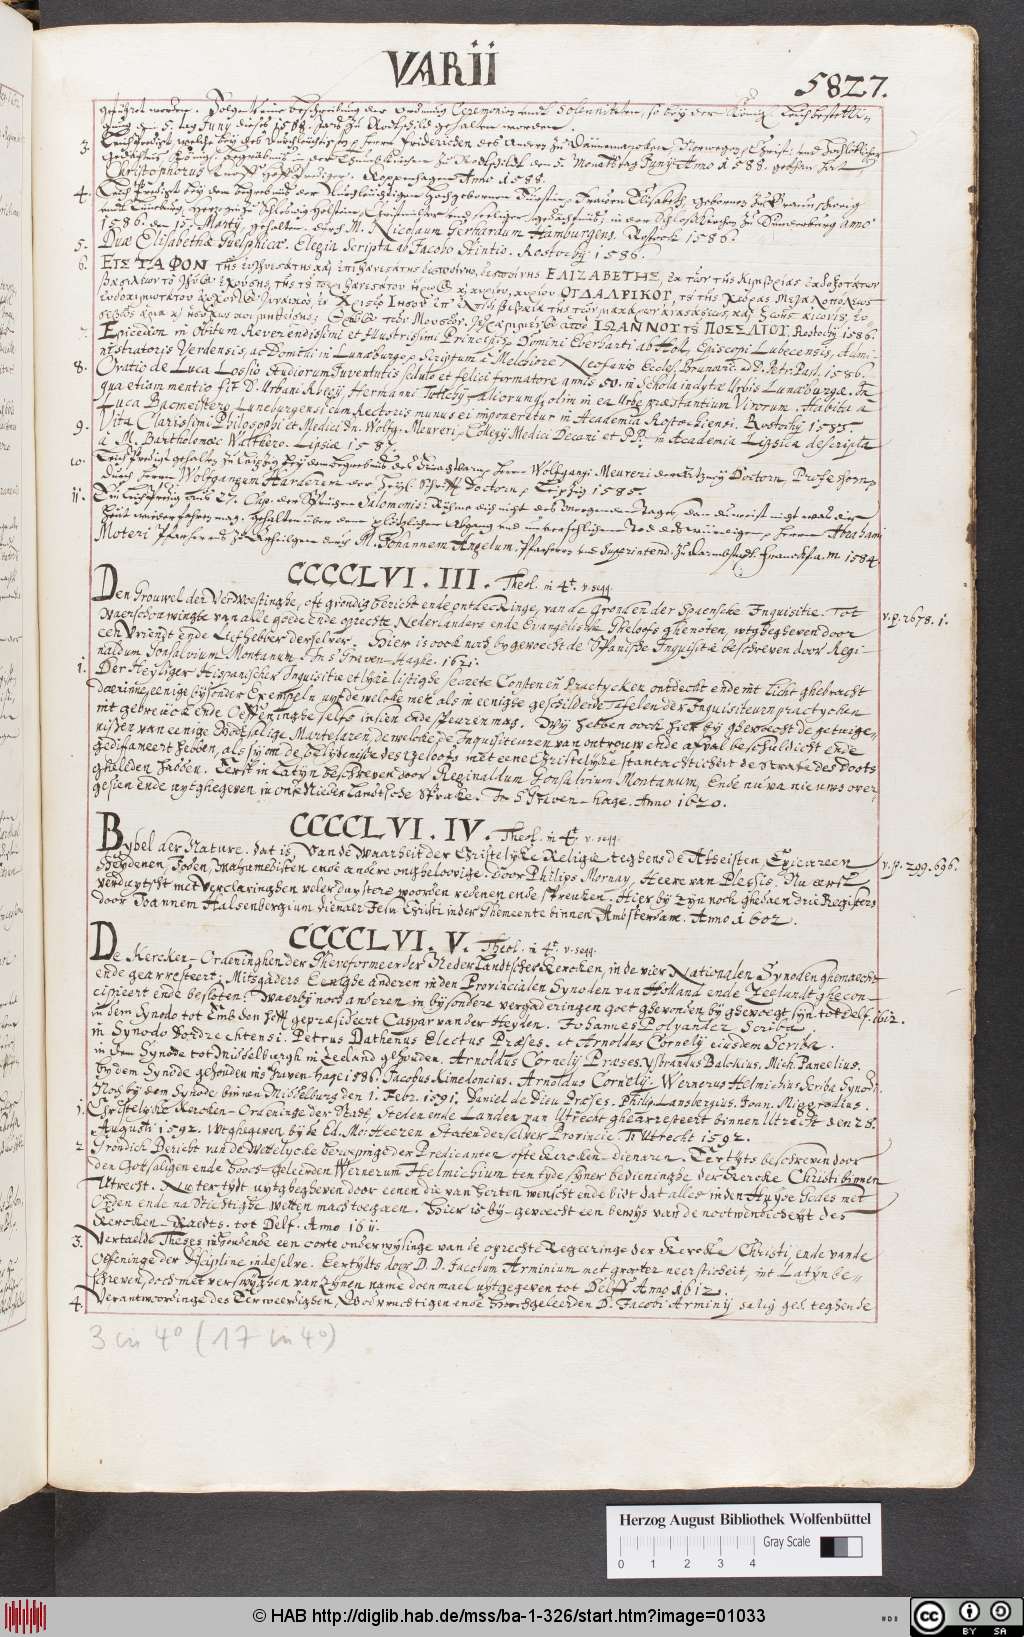 VARII
5827.
geführet worden. Folget eine beschreibung der ordnung Ceremonien undt Solenniteten, so bey der Königl. Leichbestetti-
gung den 5. tag Juny dieses 1588. Jars zu Rotschild gehalten worden.
3. Leichpredigt, welche bey des Durchleuchtigsten Herrn Friderichen des Andern zu Dännemarcken Norwegen Christ: und hochlöblicher
gedächtnis Königl. begräbnis in der Thumbkirchen zu Rotschildt den 5. Monatstag Juny Anno 1588. gethan hat
Christophorus Hoffprediger. Koppenhagen Anno 1588.
4. Leich Predigt bey dem begrebnis der Durchleuchtigen Hochgebornen Fürstin Frauen Elisabeth, gebornen zu Braunschweig
undt Lüneburg, Herzogin zu Schleswig Holstein, Christmilder und seeliger gedächtnis, in der Schloßkirchen zu Sunderburg anno
1586. den 15. Marty gehalten. durch M. Nicolaum Gerhardum Hamburgens. Rostock 1586.
5. Duae Elisabethae Guelphicae. Elegia scripta ab Jacobo Stintio. Rostochy 1586.
6. ΕΙΣ ΤΑΦΟΝ τῆς εὐγενεστάτης καὶ ἐπιφανεστάτης δεσποίνης, δεσποίνης ΕΛΙΖΑΒΕΤΗΣ, ἐκ τῶν τῆς Κιμβρίας ἐνδοξοτάτων
ΟΤΔΑΛΡΙΚΟΥ, τῆς χώρας Μεγαλοπόλεως
ἀπὸ ΙΩΑΝΝΟΥ τῦ ΠΟΣΣΛΙΟΥ. Rostochy 1586.
7. Epicedion in Obitum Reverendissimi et Illustrissimi Principis Domini Eberharti ab Holle, Episcopi Lubecensis, Admi-
nistratoris Verdensis, ac Domini in Lunaeburgo, Scriptum à Melchiore Neofanio Eccles. Brunovic. ad D. Petr. Past. 1586.
8. Oratio de Luca Lossio Studiorum Iuventutis sedulo et felici formatore annis 50. in Schola inclytae Urbis Lunaeburgae. In
qua etiam mentio fit D. Urbani Regij, Hermanni Tulichij, aliorumq. olim in ea Urbe praestantium Virorum. Habita à
Luca Bacmeistero Luneburgensi cum Rectoris munus ei imponeretur in Academia Rostochiensi. Rostochij 1585.
9. Vita Clarissimi Philosophi et Medici Dn. Wolfg. Meureri, Collegij Medici Decani et P.P. in Academia Lipsica descripta
à M. Bartholomaeo Walthero. Lipsiae 1587.
10. Leich Predigt gehalten zu Leipzig bey dem begrebnus des Ehrnvesten Herrn Wolffgangi Meureri der Artzney Doctorn, Professorn,
durch Herrn Wolfgangum Harderum der Heyl. Schrifft Doctorn, Leipzig 1585.
11. Ein Leichpredig aus 27. Cap. der Sprüchen Salomonis: Rühme dich nicht des morgenden Tages, denn du weist nicht was dir
heut wiederfahren mag. Gehalten über dem plötzlichen Abgang und unversehlichem Tod des würdigen Herrn Abrahami
Moteri Pfarherrns zu durch M. Johannem Angelum, Pfarherrn und Supprintend. zu Darmbstadt. Franckf. a. M. 1584.
CCCCLVI. III. Theol. in 4t. v. segg.
Den Grouwel der Verwoestinghe, oft grondig bericht ende ontdeckinge, van de gronden der Spaensche Inquisitie. Tot
waerschouwinghe van alle goede ende oprechte Nederlanders ende Evangelische Gheloofs ghenoten, wtghegheven door
een Vriendt ende Liefhebber derselver. Hier is oock noch bygevoecht de Spansche Inquisitie beschreven door Regi-
naldum Gonsalvium Montanum. In s' Graven-Haghe. 1621.
v. p. 2678. 1.
1. Der Heyliger Hispanischer Inquisitie etlycke listighe secrete Consten en Practycken ontdeckt ende int licht ghebracht
daerinne eenige bysonder Exempelen, uyt de welcke men als in eenighe geschilderde Tafelen der Inquisiteuren practycken
int gebruick ende Oeffeninghe selfs insien ende speuren mag. Wy hebben oock hier by ghevoecht de getuige-
nissen van eenige Godtsalige Martelaren, de welcke de Inquisiteuren van ontrouw ende afval beschuldicht ende
gediffameert hebben, als sy om de belydenisse des geloofs met eene Christelycke stantachticheit de straffe des doots
gheleden habben. Eerst in Latyn beschreven door Reginaldum Gonsalvium Montanum, Ende nu van nieuws over-
gesien ende uytghegeven in onse Nieder Landtsche sprake. In s Graven-hage. Anno 1620.
CCCCLVI. IV. Theol. in 4t. v. segg.
Bybel der Nature. Dat is, Van de Waarheit der Christelijke Religie teghens de Atheisten, Epicureen
Heydenen, Joden, Mahumedisten ende andere ongheloovige. Door Philips Mornay, Heere van Plessis. Nu eerst
verduytscht met verclaringhen veler duystere woorden redenen ende spreucken. Hier by zyn noch ghedaen drie Registers
door Joannem Halsenbergium dienaer Jesu Christi in der Ghemeente binnen Ambsterdam. Anno 1602.
v. p. 209. 696.
CCCCLVI. V. Theol. in 4t. v. segg.
De Kercken-Ordeninghen der Ghereformeerder Nederlandtscher Kercken, in de vier Nationalen Synoden ghemaeckt
ende gearresteert; Mitsgaders Eenighe anderen in den Provincialen Synoden van Holland ende Zeelandt ghecon-
cipieert ende besloten. Waerby noch anderen in bysondere vergaderingen goet ghevonden by ghevoegt syn. tot Delf. 1612.
in dem Synodo tot Embden heft gepraesideert Caspar van der Heyden. Johannes Polyander Scriba.
in Synodo Dordrechtensi. Petrus Dathenus Electus Praeses. et Arnoldus Cornelij eiusdem Scriba.
in dem Synode tot Middelburgh in Zeeland gehouden. Arnoldus Cornelij Praeses, Ysbrandus Balckius, Mich. Panselius.
by dem Synode gehouden ins Graven-hage 1586. Jacobus Kimedoncius. Arnoldus Cornelij. Wernerus Helmichius Scribae Synodi.
Noch by dem Synode binnen Middelburg den 1. Febr. 1591. Daniel de Dieu Praeses. Philip. Lansbergius. Joan. Miggrodius.
1. Christelycke Kercken-Ordeninge der Stadt, Steden ende Landen van Utrecht ghearresteert binnen Utrecht den 28.
Augusti 1592. Wtghegeven by de Ed. Mo: Heeren Staten derselver Provincie. T'Utrecht 1592.
2. Grondich Bericht van de Wettelycke beroepinge der Predicanten ofte Kercken-dienaren. Eertyts beschreven door
den Gotsaligen ende Hooch-geleerden Wernerum Helmichium ten tyde syner bedieninghe der Kercke Christi binnen
Utrecht. Nu ter tydt uytghegheven door eenen die van herten wenscht ende bidt dat alles in den Huyse Godes met
Orden ende na Stichtighe wetten mach toegaen. Hier is by-gevoecht een bewys van de nootwendicheyt des
Kercken-Raedts. tot Delf. Anno 1611.
3. Vertaelde Theses inhoudende een corte onderwysinge van de oprechte Regeeringe der Kercke Christi, ende van de
Oeffeninge der Discipline indeselve. Eertyds door D. D. Jacobum Arminium met grooter neersticheit, int Latyn be-
schreven, doch met verswyghen van zynen name doenmael uytgegeven tot Delff Anno 1612.
4. Verantwoordinge des Eerweerdighen, Godvruchtigen ende Hoochgeleerden D. Jacobi Arminij salig ged. teghende
3 in 4° (17 in 4°)
Herzog August Bibliothek Wolfenbüttel
Gray Scale
0 1 2 3 4
© HAB http://diglib.hab.de/mss/ba-1-326/start.htm?image=01033
cc BY SA